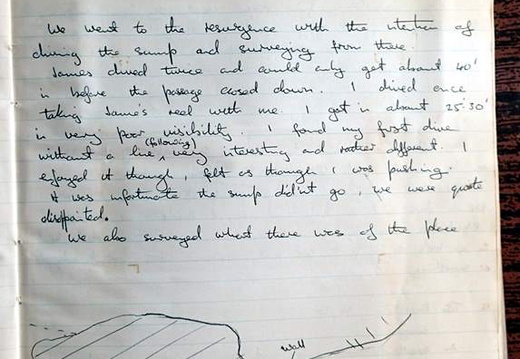 We went to the resurgence with the intention of
diving the sump and surveying from there.
James dived twice and could only get about 40'
in before the passage closed down. I dived once
taking James's reel with me. I got in about 25-30'
in very poor visibility. I found my first dive
without a line, (following) very interesting and rather different. I
enjoyed it though, felt as though I was pushing.
It was unfortunate the sump didn't go, we were quite
disappointed.
We also surveyed what there was of the place
wall